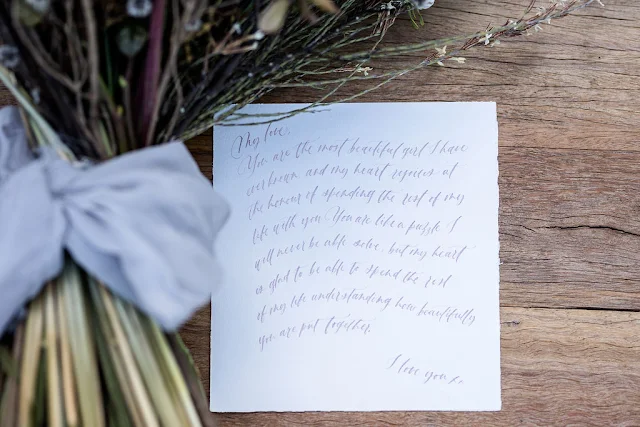 My love,
You are the most beautiful girl I have
ever known and my heart rejoices at
the honour of spending the rest of my
life with you. You are like a puzzle I
will never be able solve, but my heart
is glad to be able to spend the rest
of my life understanding how beautifully
you are put together.
I love you x